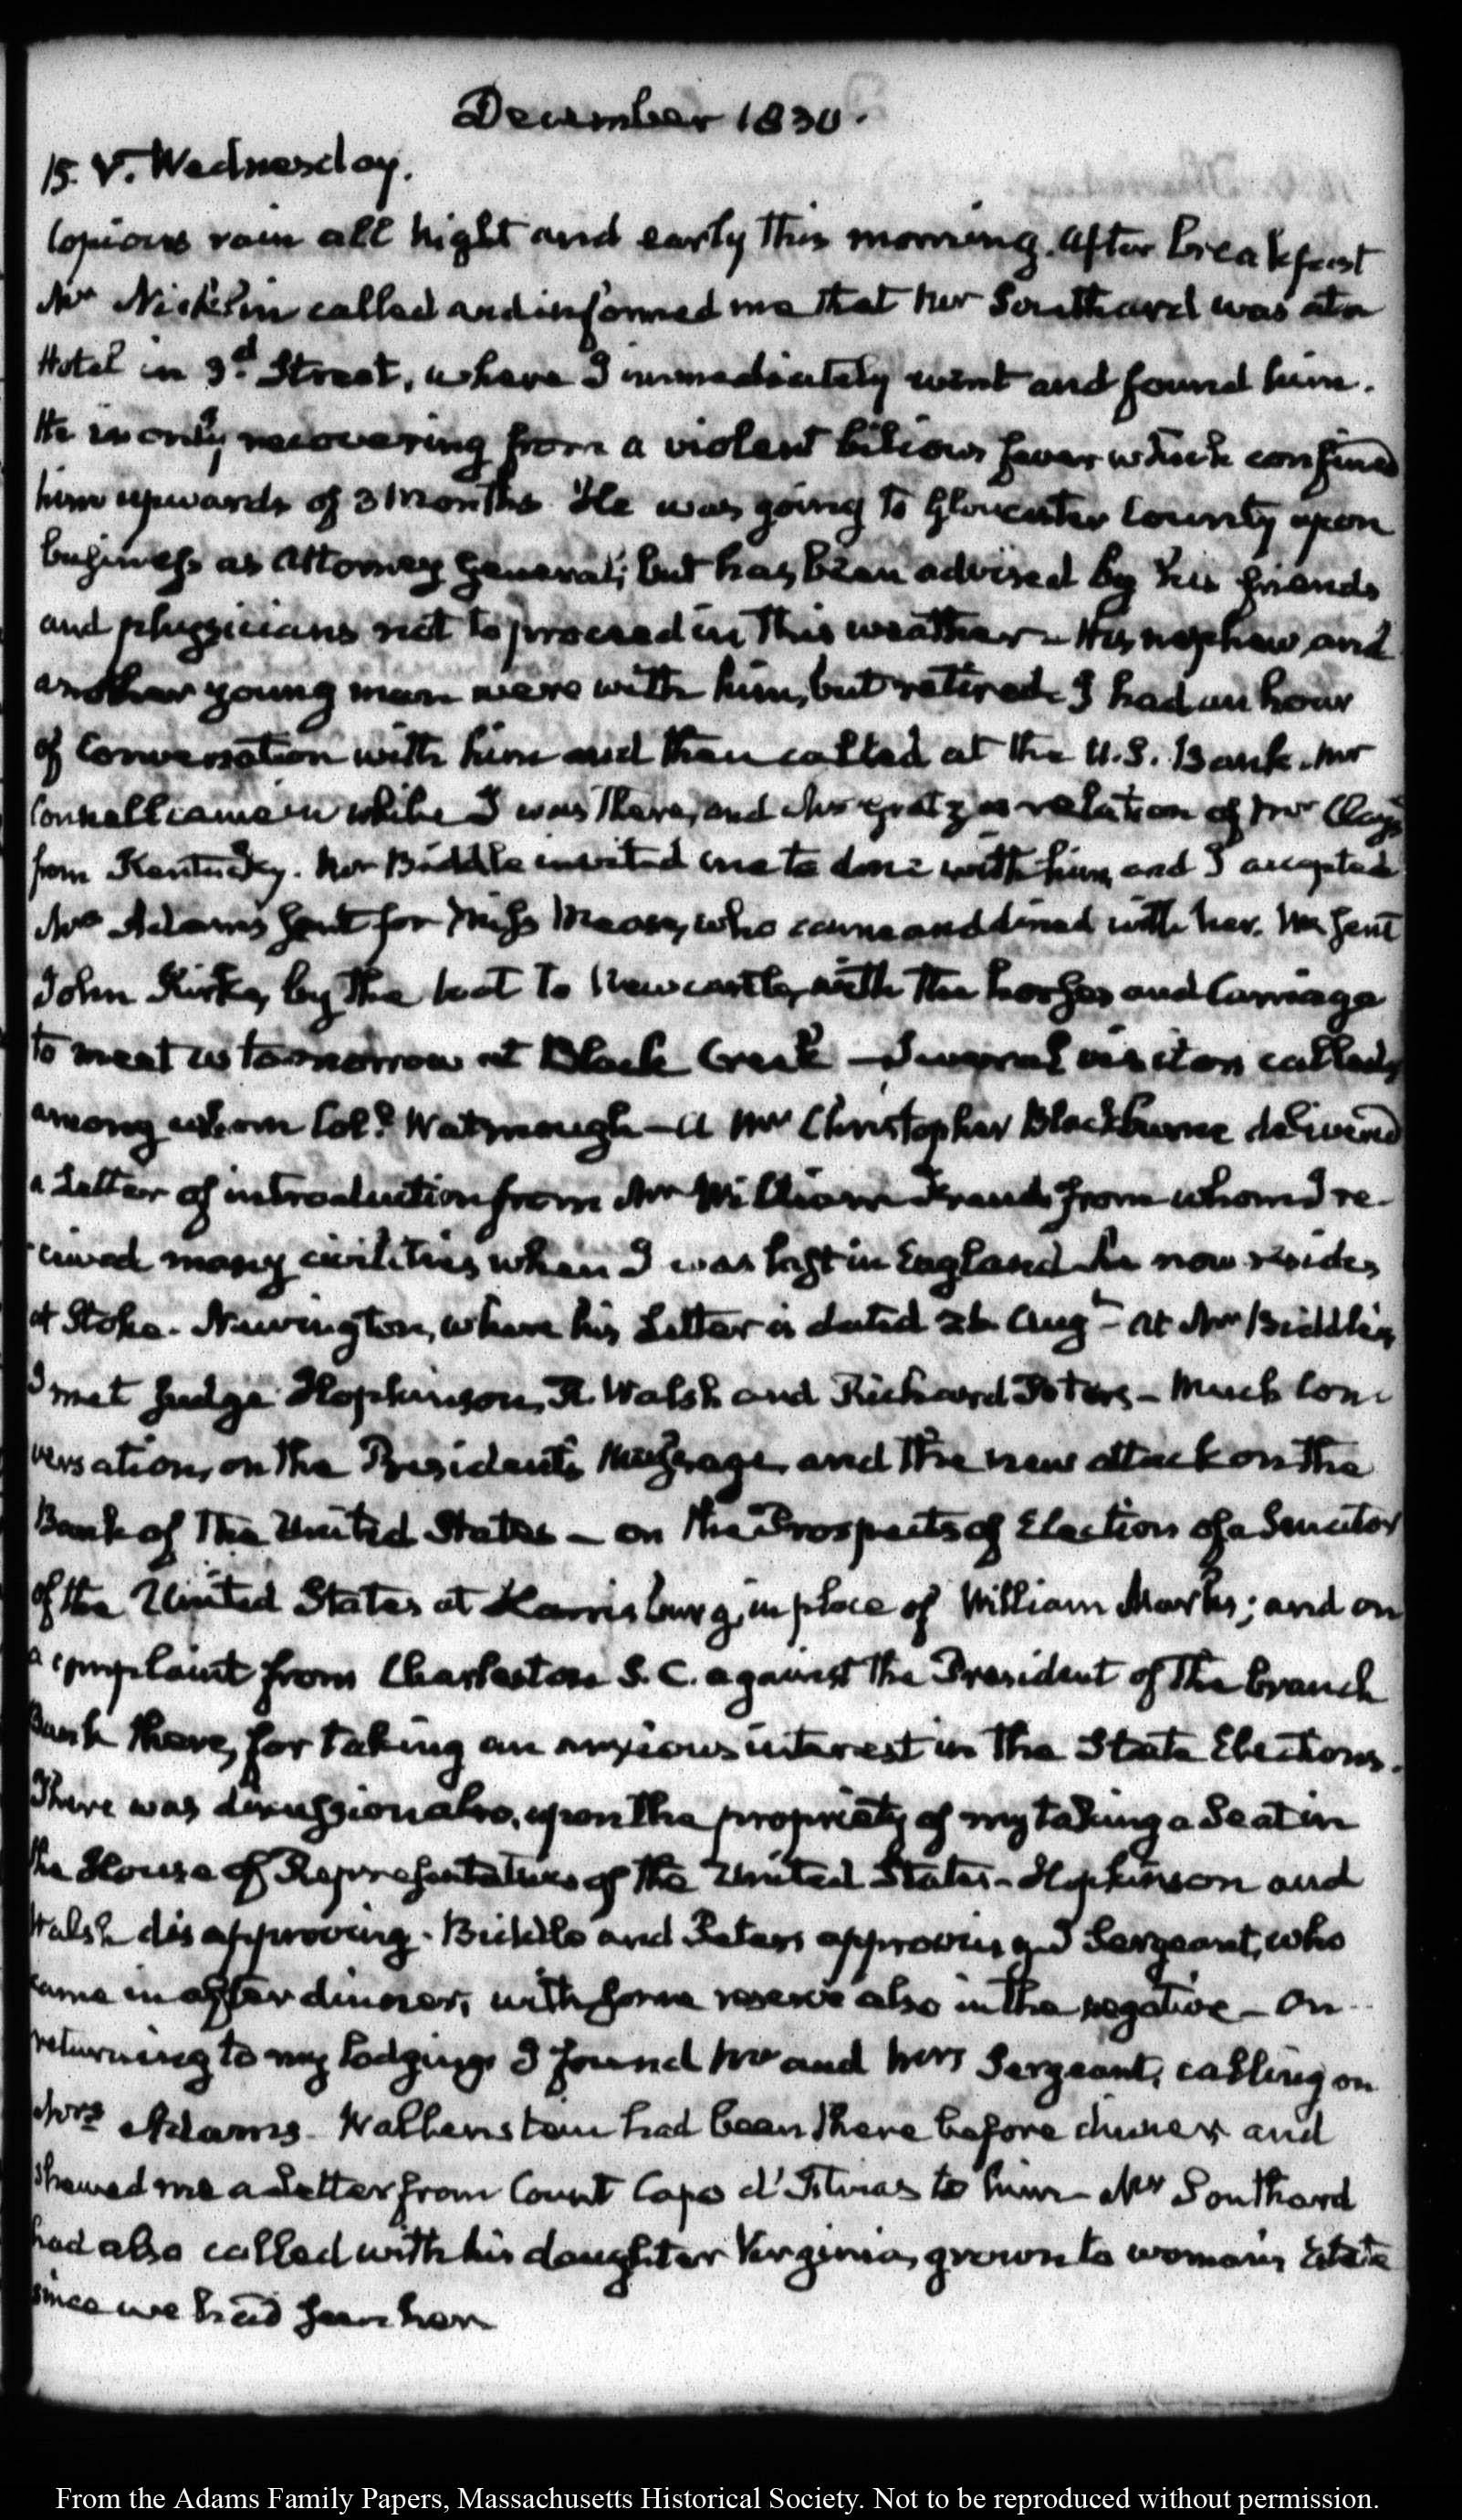 December 1830.
15. V. Wednesday.
Copious rain all night and early this morning. After breakfast
Mr Nicklin called and informed me that Mr Southard was at a
Hotel in 3d Street, where I immediately went and found him.
He is only recovering from a violent bilious fever which confined
him upwards of 3 Months. He was going to Gloucester County upon
business as Attorney General; but has been advised by his friends
and physicians not to proceed in this weather – His nephew and
another young man were with him, but retired. I had an hour
of Conversation with him and then called at the U.S. Bank. Mr
Connell came in while I was there, and Mr Gratz a relation of Mr Clay's
from Kentucky. Mr Biddle invited me to dine with him, and I accepted
Mrs Adams sent for Miss Mease, who came and dined with her. We sent
John Kirke, by the boat to Newcastle, with the horses and Carriage
to meet us tomorrow at Black Creek – Several visitors called,
among whom Coll. Watmough – A Mr Christopher Blackburne delivered
a Letter of introduction from Mr William from whom I re-
ceived many civilities when I was last in England. He now resides
at Stoke-Newington, where his Letter is dated 26 Augt – At Mr Biddle's
I met Judge Hopkinson, R. Walsh and Richard Peters – Much con-
versation, on the President's Message, and the new attack on the
Bank of the United States – on the Prospects of Election of a Senator
of the United States at Harrisburg, in place of William Marks; and on
a complaint from Charleston S.C. against the President of the branch
Bank there, for taking an anxious interest in the State Elections.
There was discussion also, upon the propriety of my taking a Seat in
the House of Representatives of the United States – Hopkinson and
Walsh disapproving. Biddle and Peters approving and Sergeant, who
came in after dinner, with some reserve also in the negative – On
returning to my lodgings I found Mr and Mrs Sergeant, calling on
Mrs Adams – Wallenstein had been there before dinner, and
shewed me a Letter from Count Capo d'Istrias to him – Mr Southard
had also called with his daughter Virginia, grown to woman's Estate
since we had seen her
From the Adams Family Papers, Massachusetts Historical Society. Not to be reproduced without permission.